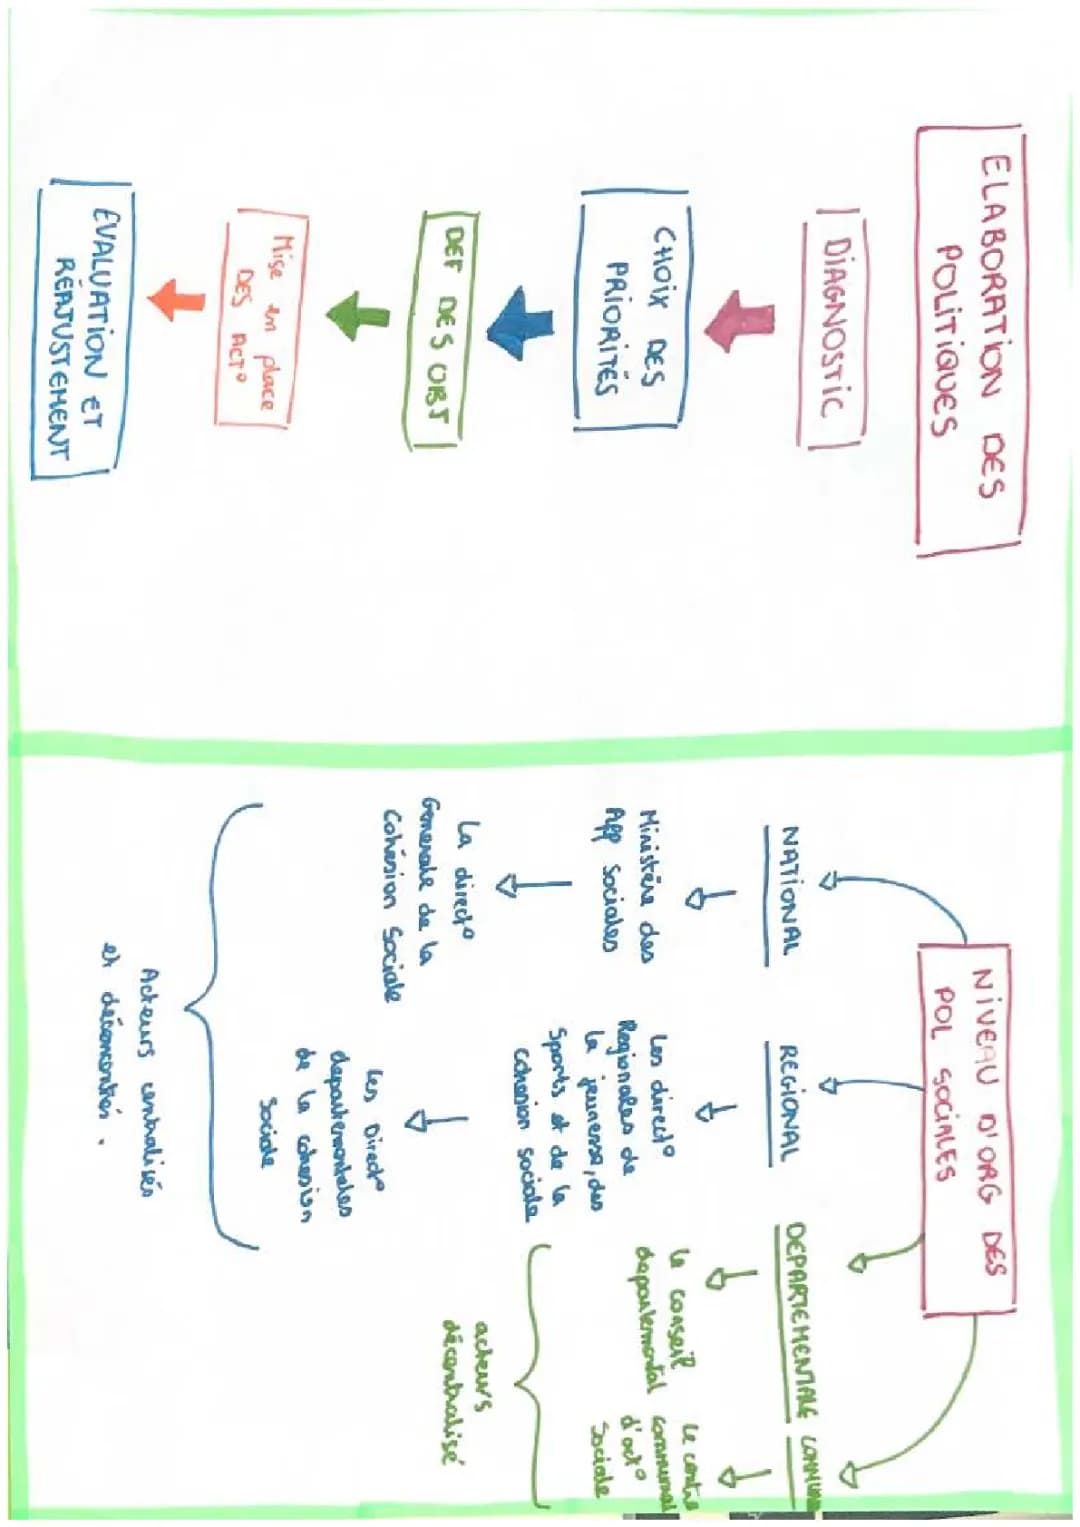 ELABORATION DES
POLITIQUES
DIAGNOSTIC
CHOIX DES
PRIORITÉS
DEF DES OBJ
Mise en place
DES ACT°
EVALUATION ET
RÉAJUSTEMENT
NIVEAU D'ORG DES
POL SOCIALES
NATIONAL
Ministère des
Aff Sociales
La direct°
Generale de la
Cohésion Sociale
REGIONAL
Les direct°
Regionales de
la jeunesse, des
Sports et de la
cohesion sociale
Les Direct°
departementales
de la cohesion
Sociale
Acteurs centralisés
et déconcentrés.
DEPARTEMENTALE
Le conseil
departemental
Le centre
communal
d'act°
Sociale
acteurs
décentralisé